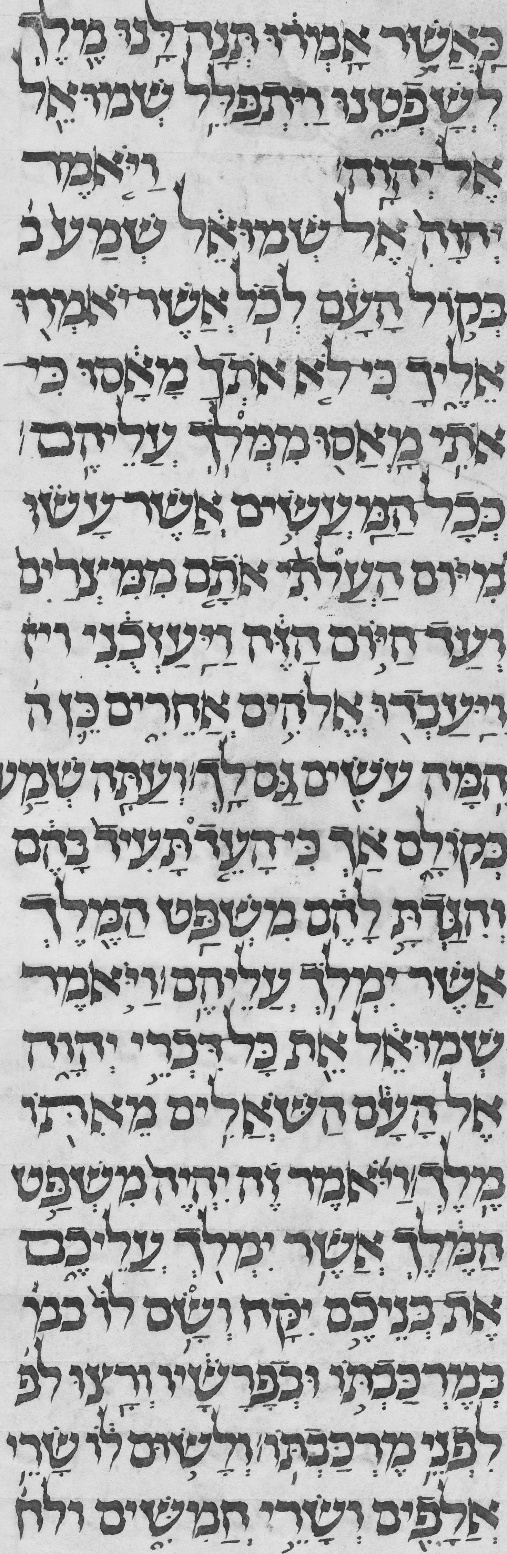 כַּאֲשֶׁר אָמְרוּ תְּנָה לָּנוּ מֶלֶךְ
לְשָׁפְטֵנוּ וַיִּתְפַּלֵּל שְׁמוּאֵל
אֶל יְהוָה׃ וַיֹּאמֶר
יְהוָה אֶל שְׁמוּאֵל שְׁמַע ב
בְּקוֹל הָעָם לְכֹל אֲשֶׁר יֹאמְרוּ
אֵלֶיךָ כִּי לֹא אֹתְךָ מָאָסוּ כִּי
אֹתִי מָאֲסוּ מִמְּלֹךְ עֲלֵיהֶם׃
כְּכָל הַמַּעֲשִׂים אֲשֶׁר עָשׂוּ
מִיּוֹם הַעֲלֹתִי אֹתָם מִמִּצְרַיִם
וְעַד הַיּוֹם הַזֶּה וַיַּעַזְבֻנִי ויע
וַיַּעַבְדוּ אֱלֹהִים אֲחֵרִים כֵּן ה
הֵמָּה עֹשִׂים גַּם לָךְ׃ וְעַתָּה שְׁמַע
בְּקוֹלָם אַךְ כִּי הָעֵד תָּעִיד בָּהֶם
וְהִגַּדְתָּ לָהֶם מִשְׁפַּט הַמֶּלֶךְ
אֲשֶׁר יִמְלֹךְ עֲלֵיהֶם׃ וַיֹּאמֶר
שְׁמוּאֵל אֵת כָּל דִּבְרֵי יְהוָה
אֶל הָעָם הַשֹּׁאֲלִים מֵאִתּוֹ
מֶלֶךְ׃ וַיֹּאמֶר זֶה יִהְיֶה מִשְׁפַּט
הַמֶּלֶךְ אֲשֶׁר יִמְלֹךְ עֲלֵיכֶם
אֶת בְּנֵיכֶם יִקָּח וְשָׂם לוֹ במ
בְּמֶרְכַּבְתּוֹ וּבְפָרָשָׁיו וְרָצוּ לפ
לִפְנֵי מֶרְכַּבְתּוֹ׃ וְלָשׂוּם לוֹ שָׂרֵי
אֲלָפִים וְשָׂרֵי חֲמִשִּׁים ולח